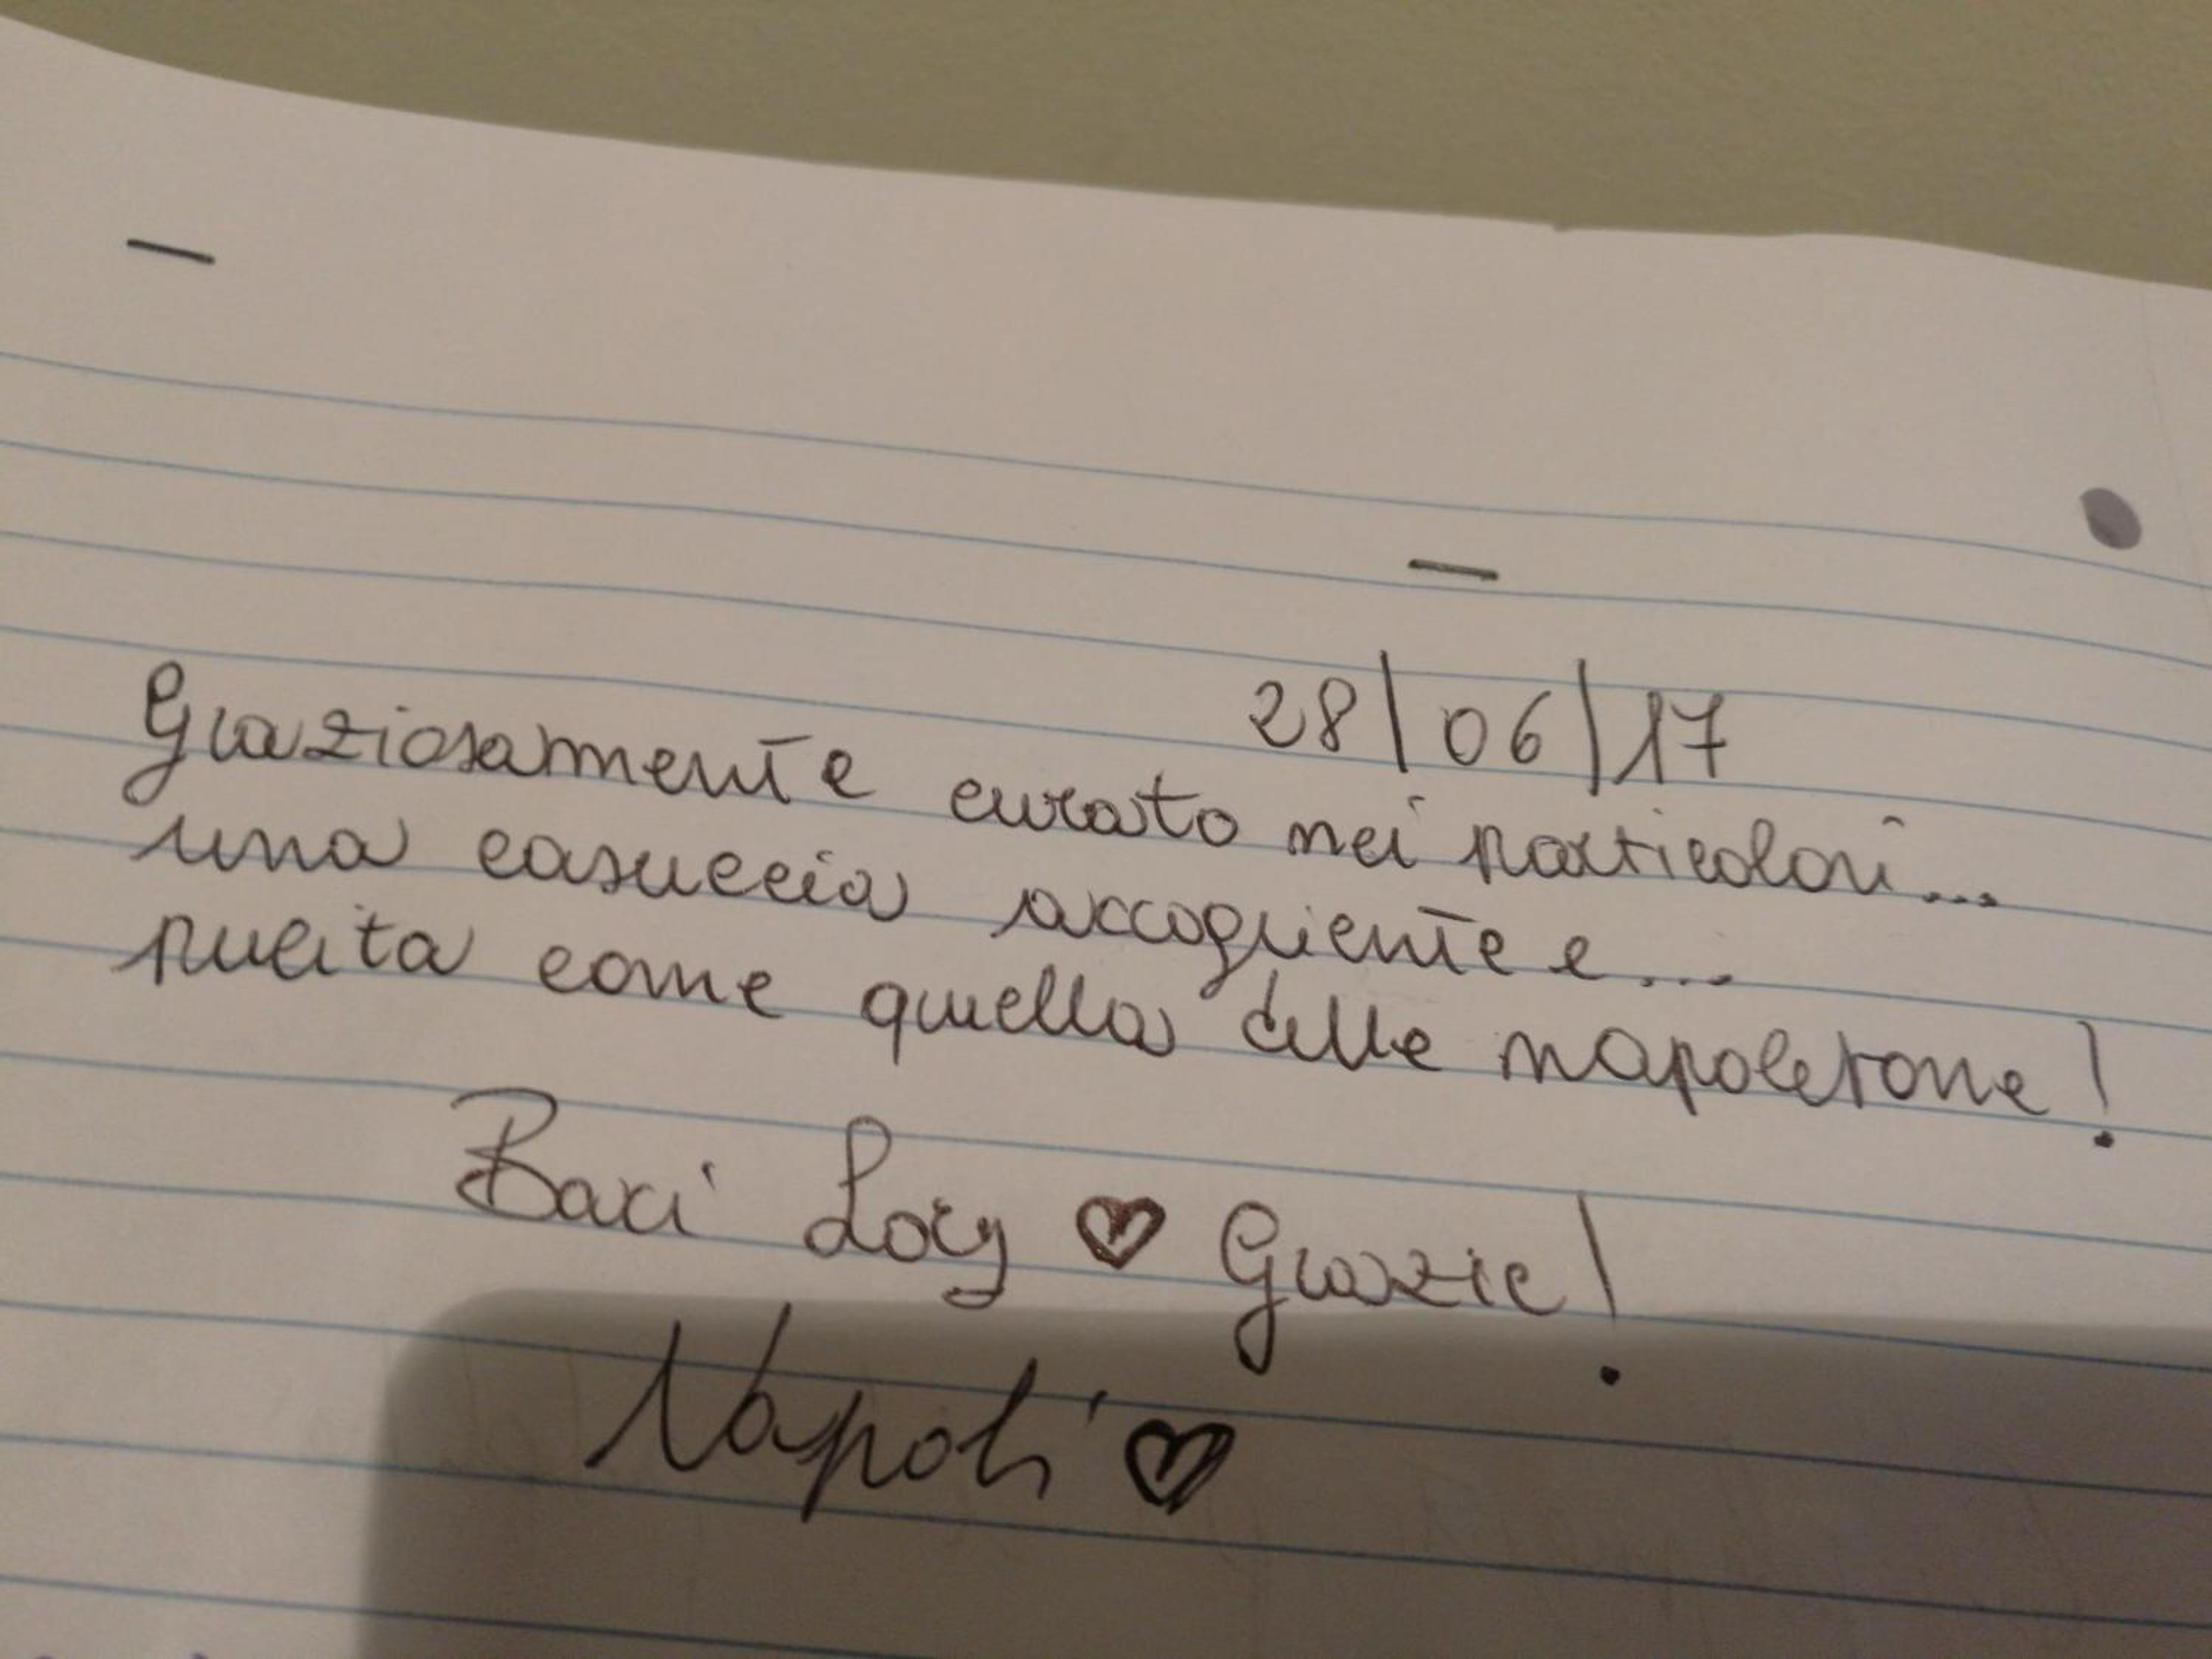 28/06/17
Graziosamente curato nei particolari...
una casuccia accogliente e...
pulita come quella delle napoletane!
Baci Locy ♥ Grazie!
Napoli ♥